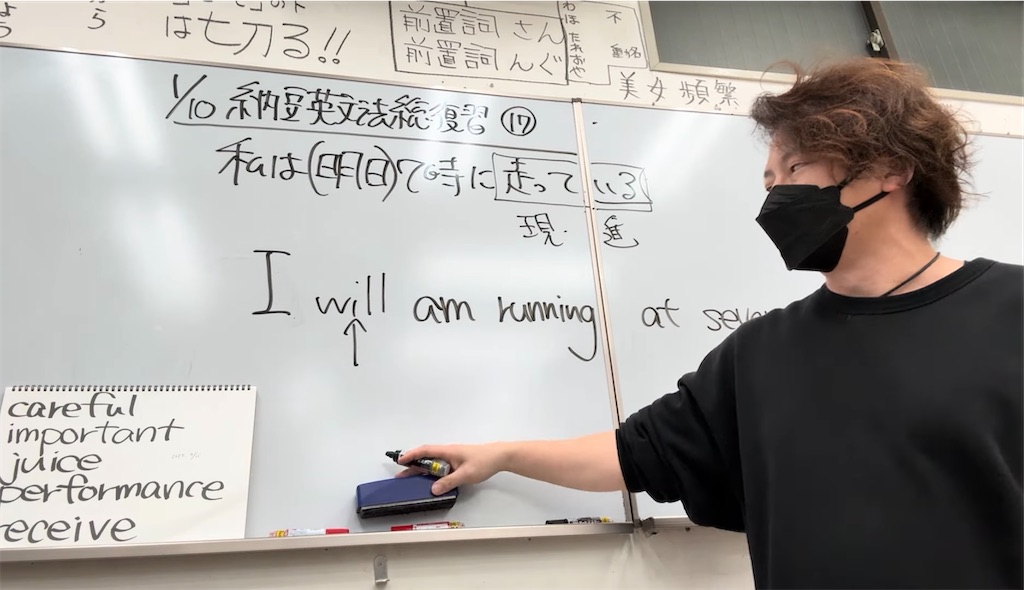 から
は七刀る!!
前置詞 さん
前置詞 んぐ
不
美女頻繁
1/10 納豆英文法総復習 ⑰
私は(明日)7時に走っている
現・進
I will am running at seve
careful
important
juice
performance
receive